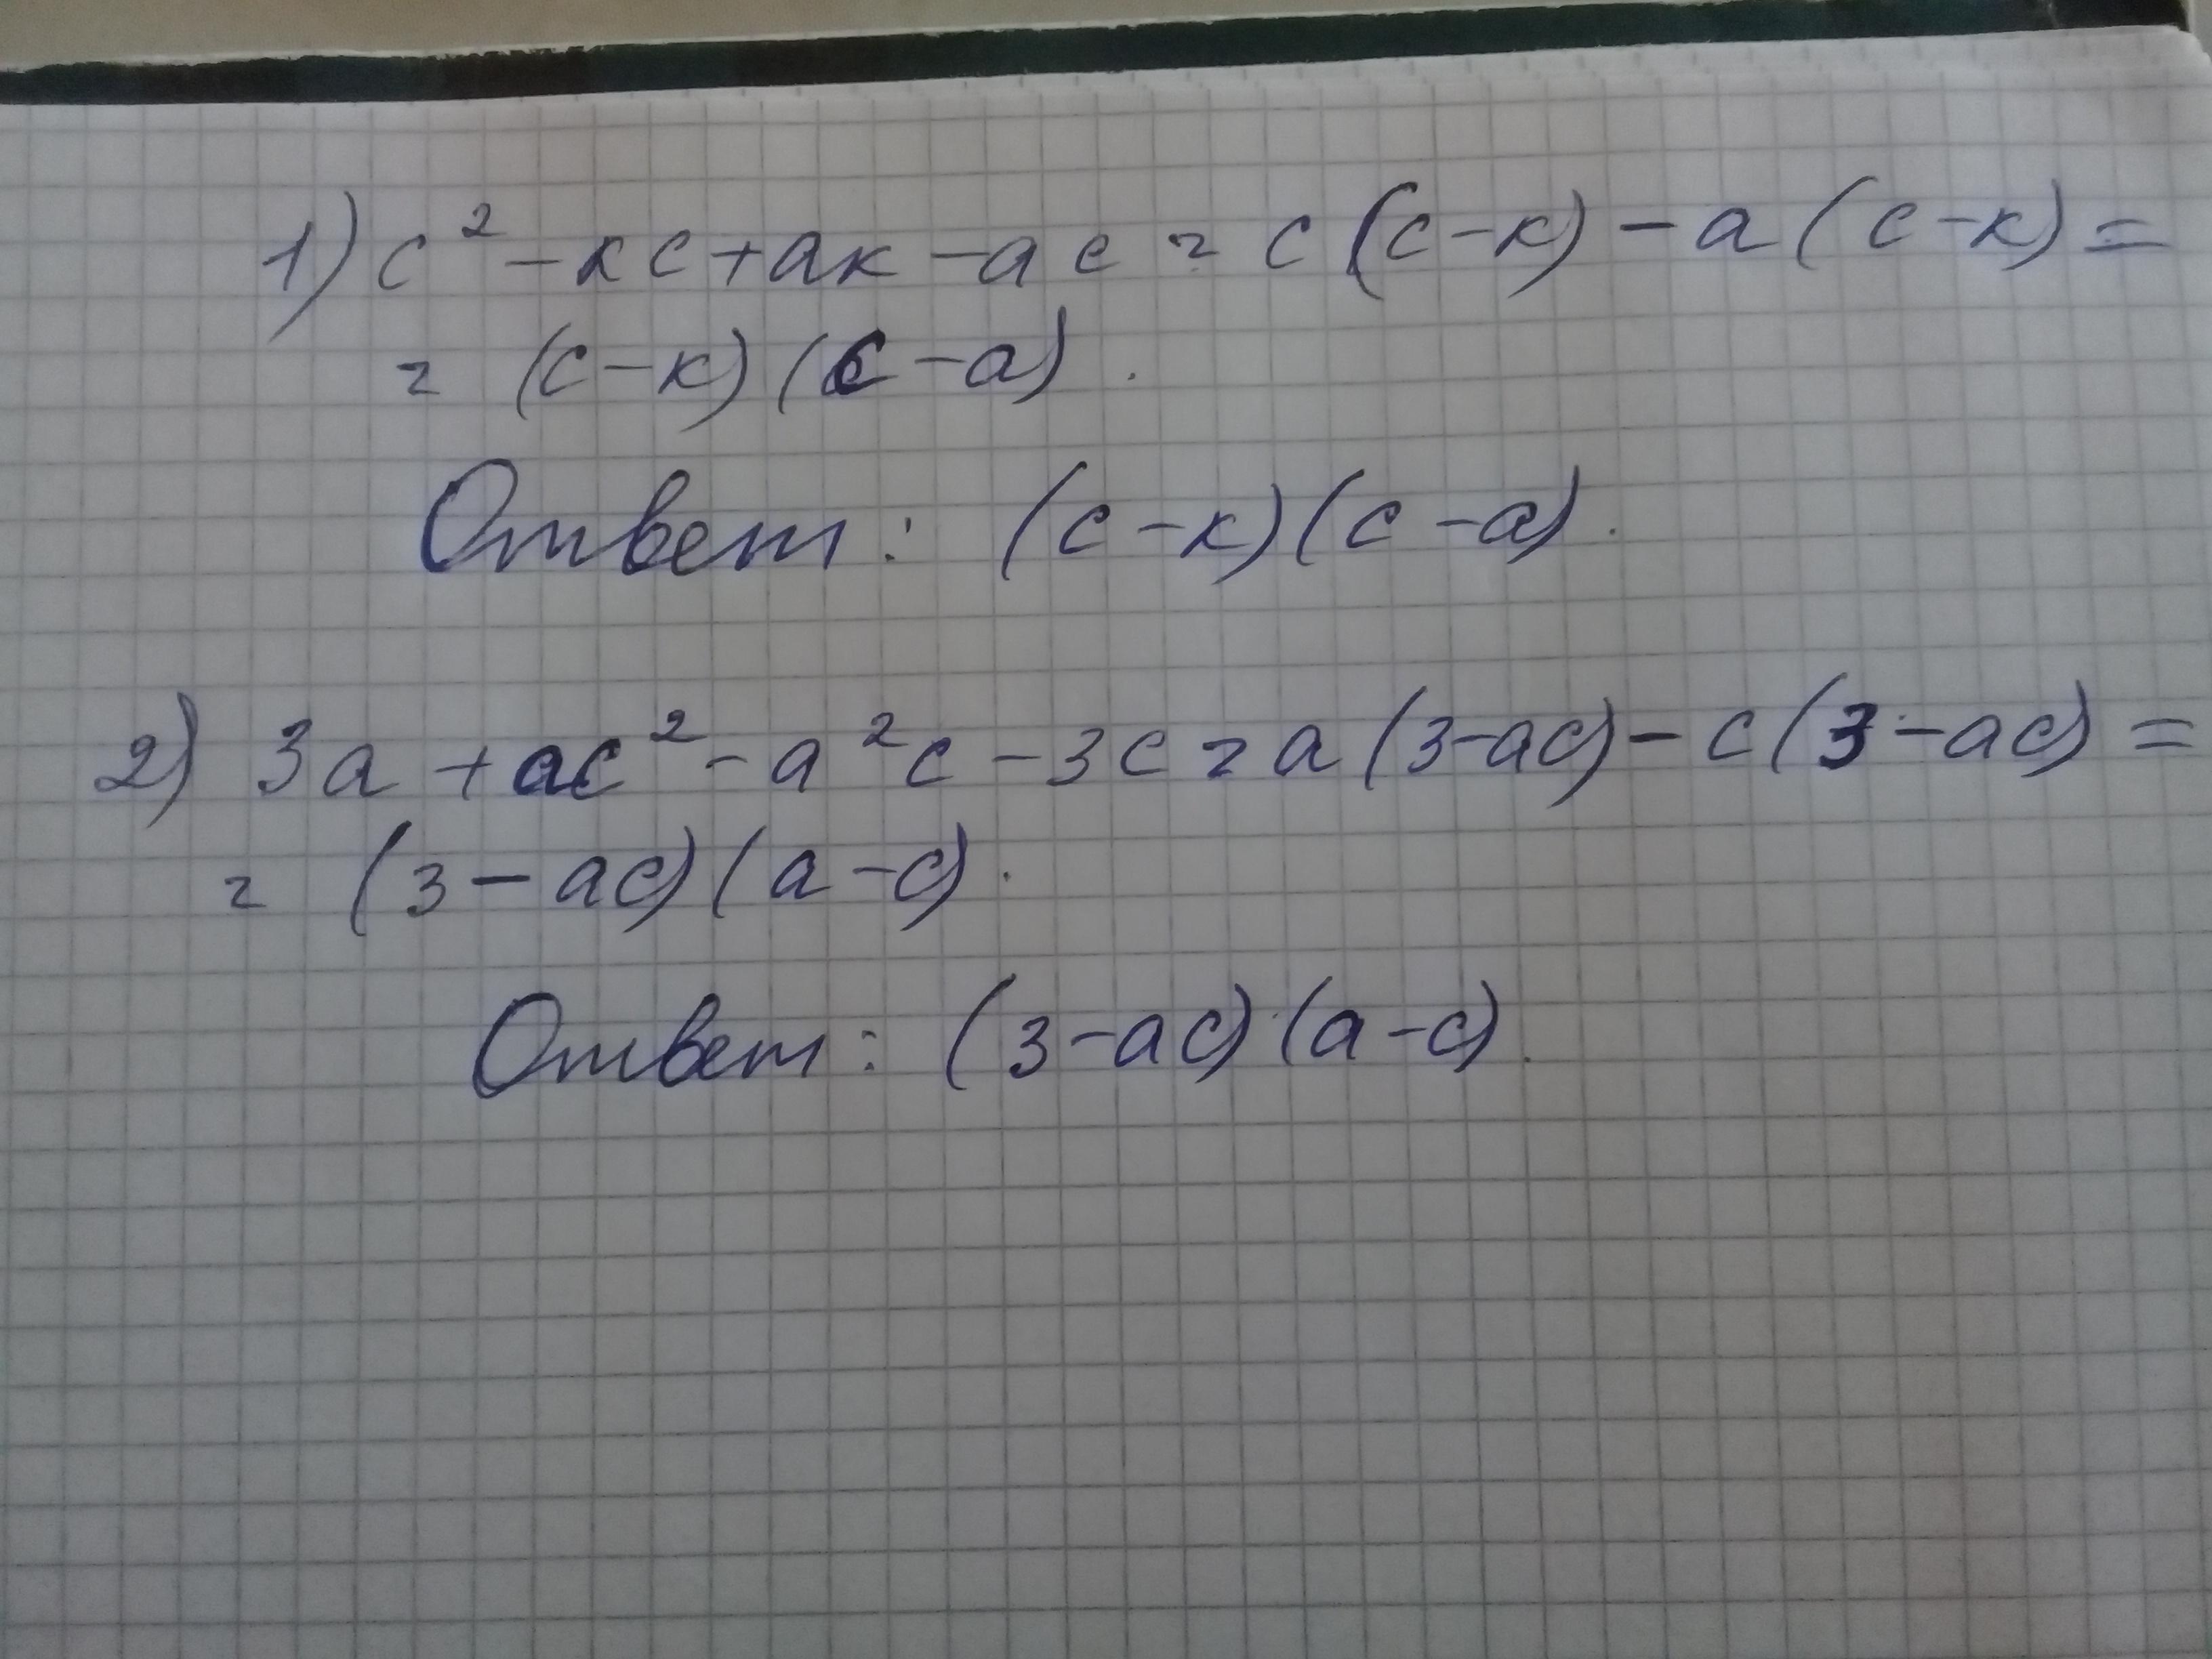 1) c² - кc + aк - ac = c (c - к) - a (c - к) =
= (c - к) (c - a) .
Ответ: (c - к) (c - a) .
2) 3a + ac² - a²c - 3c = a (3 - ac) - c (3 - ac) =
= (3 - ac) (a - c) .
Ответ: (3 - ac) (a - c) .